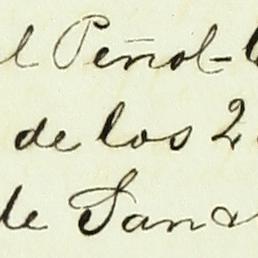 el Peñol-
de los 2
de San